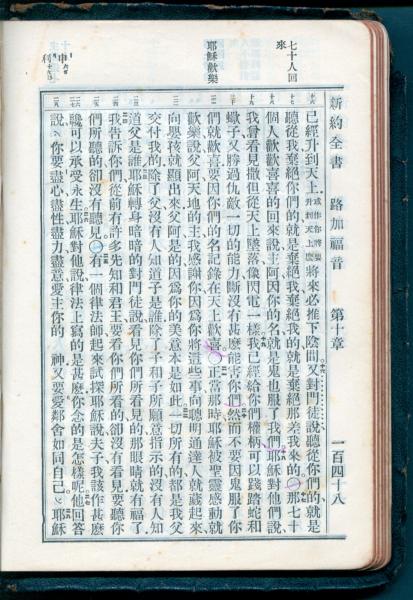 新約全書 路加福音 第十章 一百四十八
七十人回
來
耶穌歡樂
已經升到天上或作你將要升到天上麼將來必推下陰間又對門徒說聽從你們的就是
聽從我棄絕你們的就是棄絕我棄絕我的就是棄絕那差我來的○那七十
個人歡歡喜喜的回來說主阿因你的名就是鬼也服了我們耶穌對他們說
我曾看見撒但從天上墜落像閃電一樣我已經給你們權柄可以踐踏蛇和
蠍子又勝過仇敵一切的能力斷沒有甚麼能害你們然而不要因鬼服了你
們就歡喜要因你們的名記錄在天上歡喜○正當那時耶穌被聖靈感動就
歡樂說父阿天地的主我感謝你因為你將這些事向聰明通達人就藏起來
向嬰孩就顯出來父阿是的因為你的美意本是如此一切所有的都是我父
交付我的除了父沒有人知道子是誰除了子和子所願意指示的沒有人知
道父是誰耶穌轉身暗暗的對門徒說看見你們所看見的那眼睛就有福了
我告訴你們從前有許多先知和君王要看你們所看的卻沒有看見要聽你
們所聽的卻沒有聽見○有一個律法師起來試探耶穌說夫子我該作甚麼
纔可以承受永生耶穌對他說律法上寫的是甚麼你念的是怎樣呢他回答
說你要盡心盡性盡力盡意愛主你的 神又要愛鄰舍如同自己耶穌